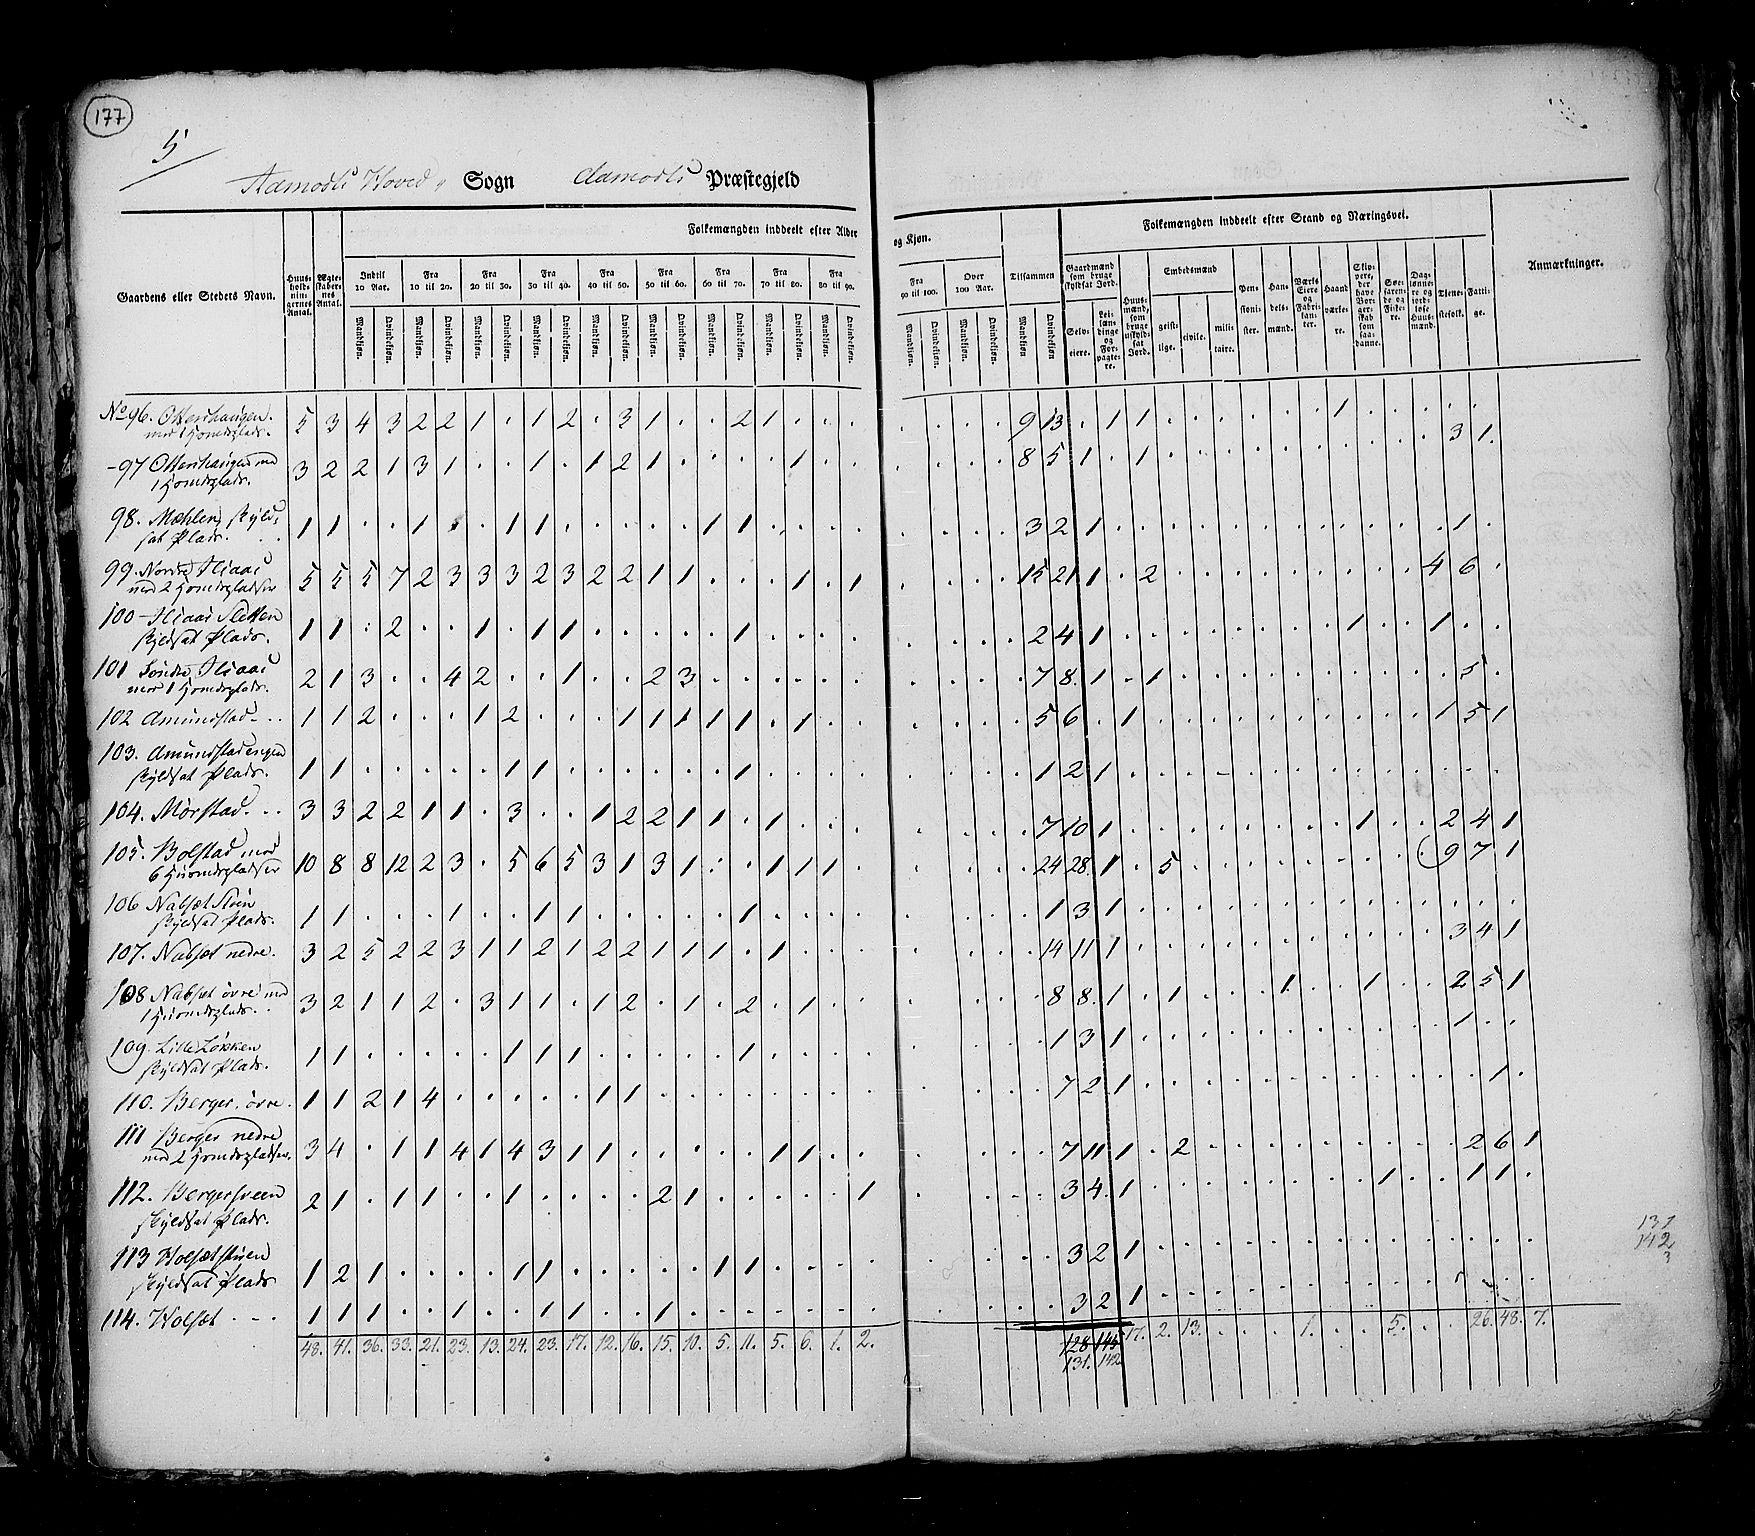 177
5
Aamodts Hoved Sogn Aamodts Præstegjeld
Gaardens eller Stedets Navn.
Huus-
hold-
nin-
gernes
Antal.
Ægte-
skaber-
nes
Antal.
Folkemængden inddeelt efter Alder
og Kjøn.
Folkemængden inddeelt efter Stand og Næringsvei.
Anmærkninger.
Indtil 10 Aar.
Fra 10 til 20.
Fra 20 til 30.
Fra 30 til 40.
Fra 40 til 50.
Fra 50 til 60.
Fra 60 til 70.
Fra 70 til 80.
Fra 80 til 90.
Fra 90 til 100.
Over 100 Aar.
Tilsammen
Mandkjøn. Qvindekjøn.
Gaardmænd som bruge skyldsat Jord.
Selv-
eiere.
Lei-
læn-
dinge
og
For-
pagte-
re.
Huus-
mænd,
som
bruge
uskyld-
sat
Jord.
Embedsmænd
geist-
lige.
civile.
mili-
taire.
Pen-
sioni-
ster.
Han-
dels-
mænd.
Værks
Eiere
og
Fabri-
kan-
ter.
Haand
værke-
re.
Skip-
pere,
der
have
Bor-
ger-
skab
som
saa-
danne.
Søe-
faren-
de og
Fiske-
re.
Dag-
lønne-
re og
jord-
løse
Huus-
mænd.
Tjene-
stefolk.
Fatti-
ge.
No 96. Ottershaugen.
med 1 Huusmdsplads. 5 3 4 3 2 2 1 . 1 2 . 3 1 . . 2 1 . . . . . . . 9 13 . 1 1 . . . . . . 1 . . . 3 1.
-97 Ottershaugen med
1 Huusmdsplads. 3 2 2 1 3 1 . . 1 . 1 2 1 . . . . 1 . . . . . . 8 5 1 . 1
98. Mæhlen, skyld-
sat Plads. 1 1 . . 1 . . 1 1 . . . . . 1 1 . . . . . . . . 3 2 1 . . . . . . . . . . . . 1 .
99. Nordre Iliaas
med 2 Huusmdspladser 5 5 5 7 2 3 3 3 2 3 2 2 1 1 . . . 1 . 1 . . . . 15 21 1 . 2 . . . . . . . . . 4 6 .
100 - Iliaas Sletten
skyldsat Plads. 1 1 . 2 . . 1 . 1 1 . . . . . 1 . . . . . . . . 2 4 1 . . . . . . . . . 1 . . 1 . .
101 Søndre Iliaas
med 1 Huusmdsplads. 2 1 3 . . 4 2 . . 1 . . 2 3 . . . . . . . . . . 7 8. 1 . 1 . . . . . . . . . . 5 .
102 Amundstad - . . 1 1 2 . . . 1 2 . . . 1 1 1 1 1 . 1 . . . . . . 5 6 . 1 . . . . . . . . . . 1 5 1
103. Amundstadengen
skyldsat Plads. 1 1 . . . . . 1 1 . . . . . . 1 . . . . . . . . 1 2 1 . . . . . . . . . . . . . .
104. Mørstad. - . 3 3 2 2 1 1 . 3 . . 1 2 2 1 1 . 1 . . . . . . . 7 10 1 . . . . . . . . 1 . . 2 4 1
105. Bolstad med
6 Huusmdspladser 10 8 8 12 2 3 . 5 6 5 3 1 3 1 . . 1 1 1 . . . . . 24 28. 1 . 5 . . . . . . . . . 9 7 1
106 Nabsæt Støen
skyldsat Plads. 1 1 . . . 1 . . 1 1 . . . . . 1 . . . . . . . . 1 3 1 . . . . . . . . . . . . . .
107. Nabsæt nedre. 3 2 5 2 2 3 1 1 2 1 2 2 1 1 1 . 1 . . . . . . . 14 11 1 . . . . . . . . . . . 3 4 1
108 Nabsæt øvre med
1 Huusmdsplads. 3 2 1 1 2 . 3 1 1 . 1 2 . 1 . 2 . 1 . . . . . . 8 8. 1 . 1 . . . 1 . . 1 . . 2 5 1
109. Lille Løkken
skyldsat Plads. 1 1 . . . . . 1 1 1 . . . . . 1 . . . . . . . . 1 3 1 . . . . . . . . . . . 1 . .
110. Berger, øvre. 1 1 2 1 4 . . . . . 1 1 . . . . . . . . . . . . 7 2. 1 . . . . . . . . . . . . 1 .
111 Berger nedre
med 2 Huusmdspladser. 3 4 . 1 1 4 1 4 3 1 1 . . . . . 1 1 . . . . . . 7 11 1 . 2 . . . . . . . . . 2 6 1
112. Bergersveen
skyldsat Plads. 2 1 . 1 1 . . 1 . . . . 2 1 . . . . . 1 . . . . 3 4. 1 . . . . . . . . 1 . . 1 1 .
113 Holsætstuen
skyldsat Plads 1 2 1 . . . . 1 1 . . . . . 1 1 . . . . . . . . 3 2 1 . . . . . . . . . . . . . .
114. Holsæt . - - . 1 1 1 . . 1 . . 1 1 . . 1 . . . . . . . . . . . 3 2 1
48. 41. 36. 33. 21. 23. 13. 24. 23. 17. 12. 16. 15. 10. 5. 11. 5. 6. 1. 2. 128 145 17. 2. 13. . . . 1. . . 5. . . 26. 48. 7.
131. 142
131
142
3